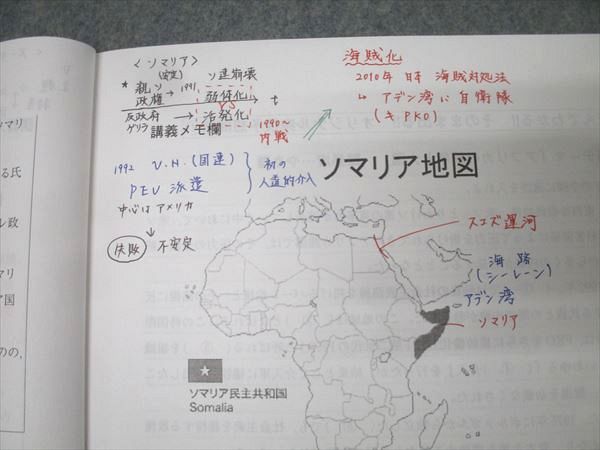 <ソマリア>
(安定)
ソ連崩壊
* 親ソ
政権 → 1991 弱体化 → t
vs
反政府
ゲリラ → 活発化
講義メモ欄
1990〜
内戦
海賊化
2010年 日本 海賊対処法
↳ アデン湾に自衛隊
(≠PKO)
1992 U.N.(国連)
PEU 派遣
初の
人道的介入
中心はアメリカ
↓
失敗 不安定
ソマリア地図
スエズ運河
海路
(シーレーン)
アデン湾
ソマリア
ソマリア民主共和国
Somalia
ソマリ
る氏
ル政
マリ
ア国
のの、